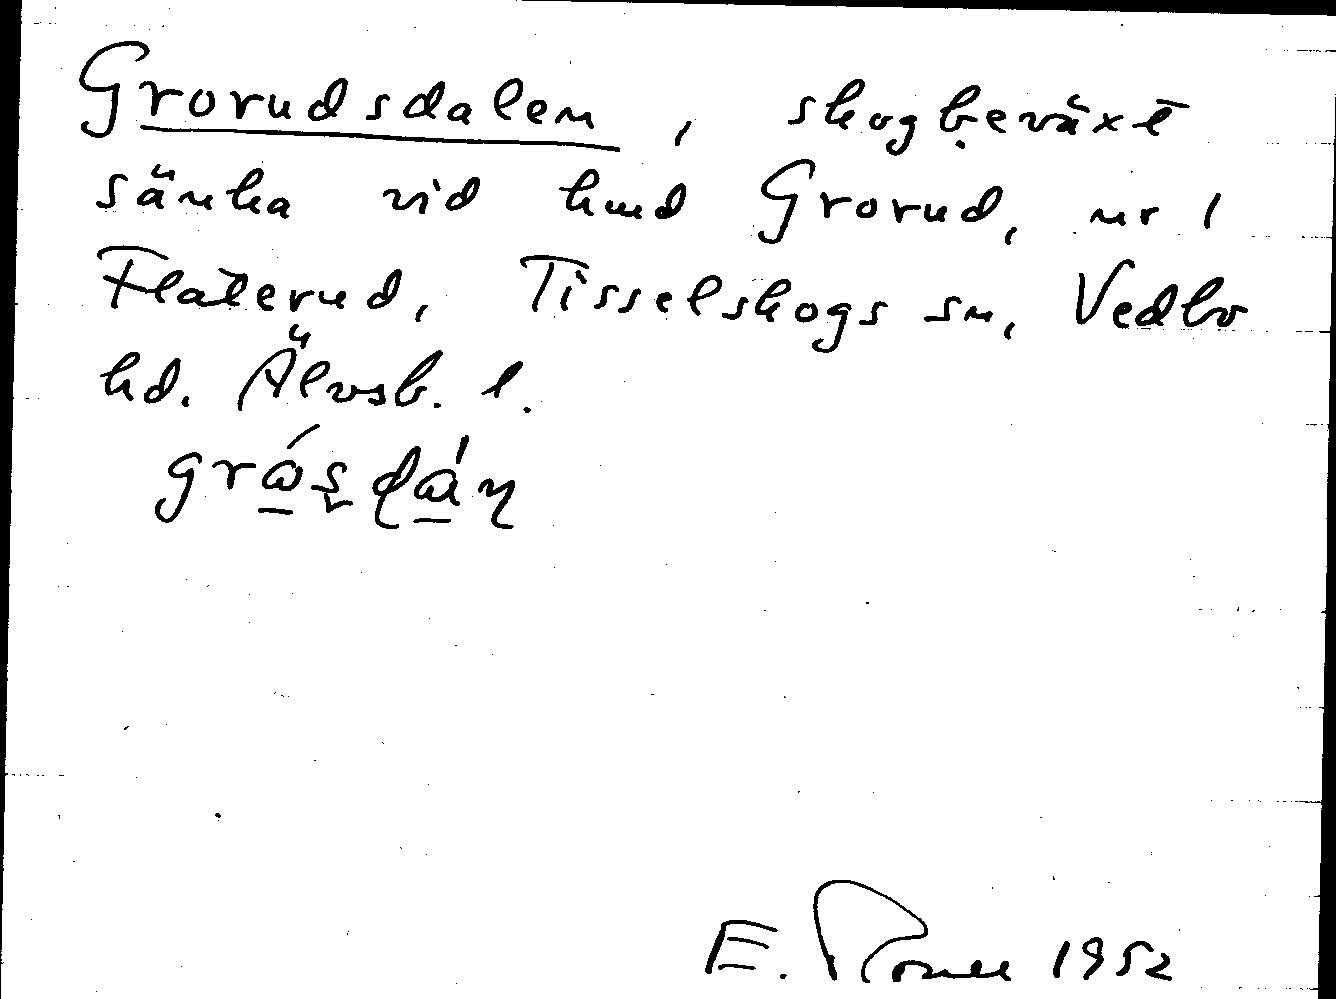 Grorudsdalen, skogbeväxt
sänka vid hmd Grorud, nr 1
Flaterud, Tisselskogs sn, Vedbo
hd. Älvsb. l.
E. 1952